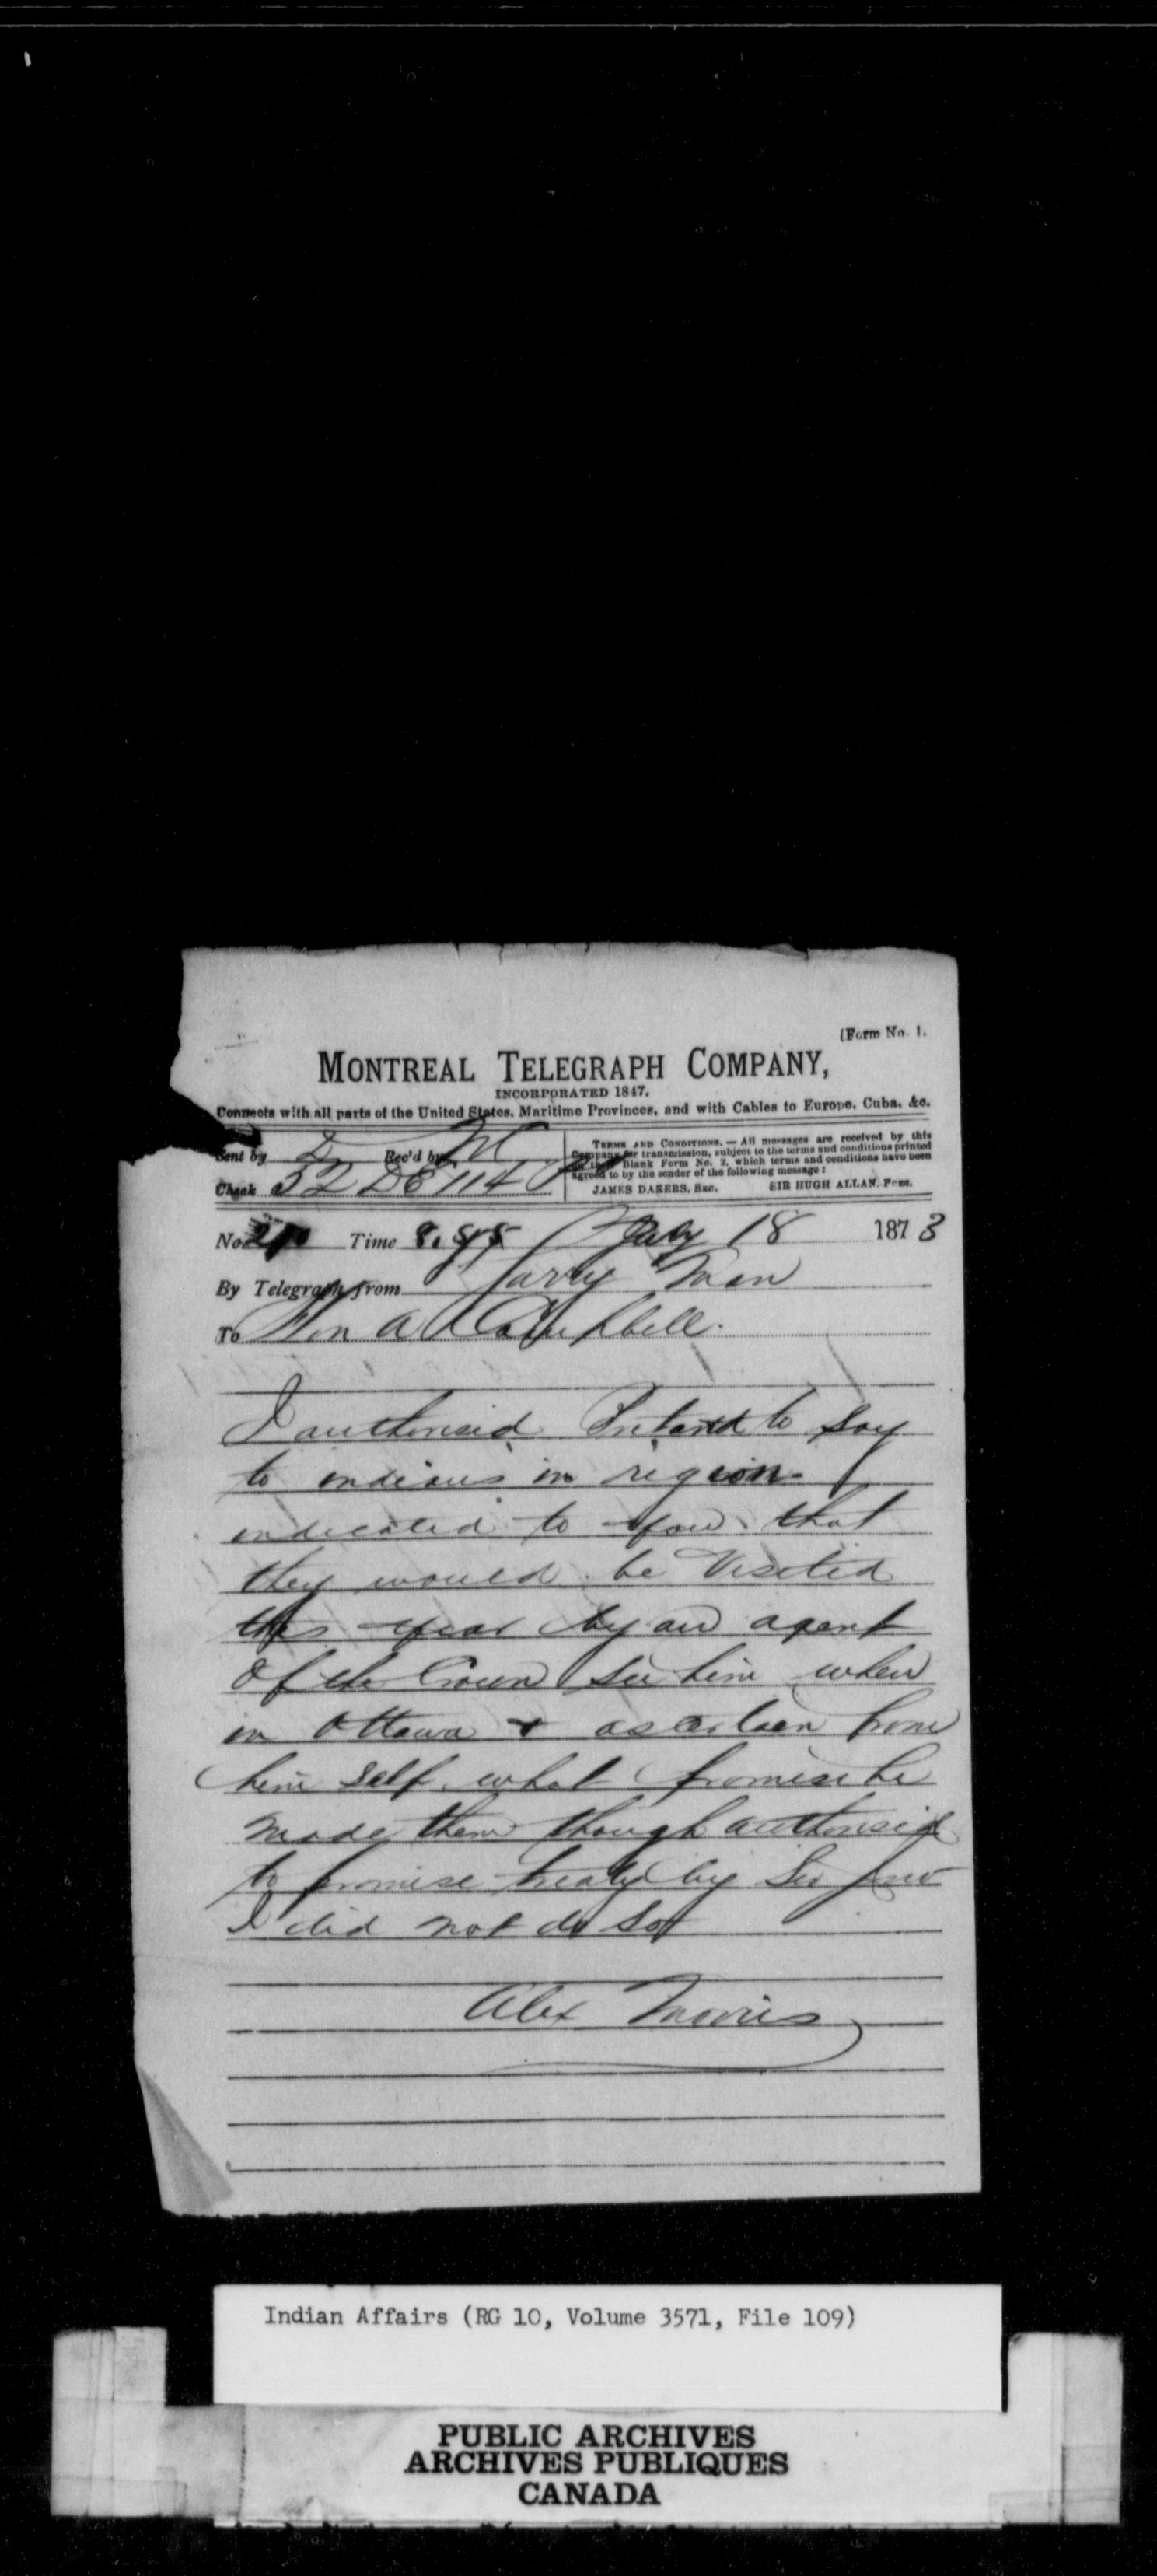 [Form No. 1.
MONTREAL TELEGRAPH COMPANY,
INCORPORATED 1847.
Connects with all parts of the United States, Maritime Provinces, and with Cables to Europe, Cuba, &c.
Sent by D Rec'd by M
Check 32 DH 114
TERMS AND CONDITIONS. — All messages are received by this
Company for transmission, subject to the terms and conditions printed
on their Blank Form No. 2, which terms and conditions have been
agreed to by the sender of the following message:
JAMES DAKERS, Sec. SIR HUGH ALLAN, Pres.
No. Time 8.55 July 18 1873
By Telegraph from Garry Man
To Hon A Campbell.
I authorised to say
to indians in region
indicated to you that
they would be visited
this year by an agent
of the Crown See him when
in Ottawa & ascertain from
him self what promise he
made them though authorised
to promise treaty by Sir Jno
I did not do so
Alex Morris
Indian Affairs (RG 10, Volume 3571, File 109)
PUBLIC ARCHIVES
ARCHIVES PUBLIQUES
CANADA